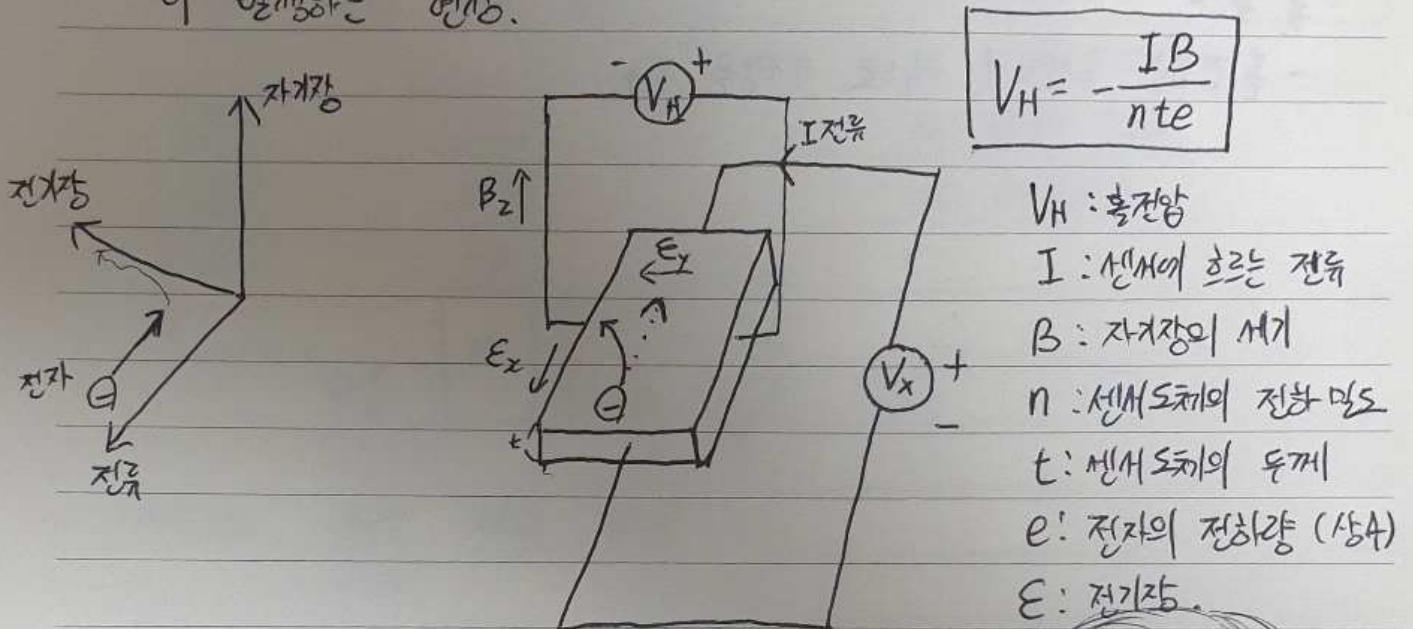 발생하는 현상.
자기장
전기장
전자
⊖
전류
- V_H +
I 전류
B_z ↑
ε_y
ε_x
⊖
t
V_x +
-
V_H = - IB / nte
V_H : 홀전압
I : 센서에 흐르는 전류
B : 자기장의 세기
n : 센서도체의 전하 밀도
t : 센서도체의 두께
e : 전자의 전하량 (상수)
ε : 전기장.